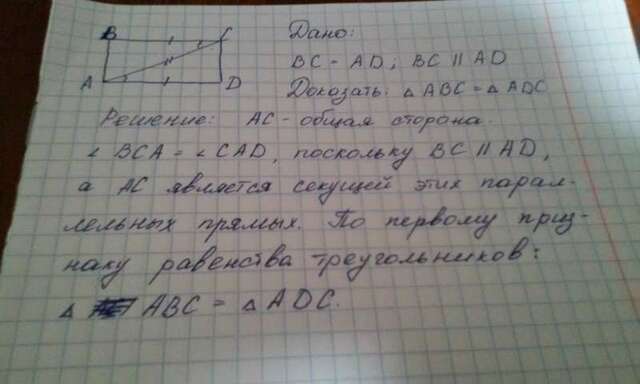 B C Дано:
BC = AD; BC || AD
A D Доказать: △ ABC = △ ADC
Решение: AC - общая сторона.
∠ BCA = ∠ CAD, поскольку BC || AD,
а AC является секущей этих парал-
лельных прямых. По первому приз-
наку равенства треугольников:
△ ABC = △ ADC.